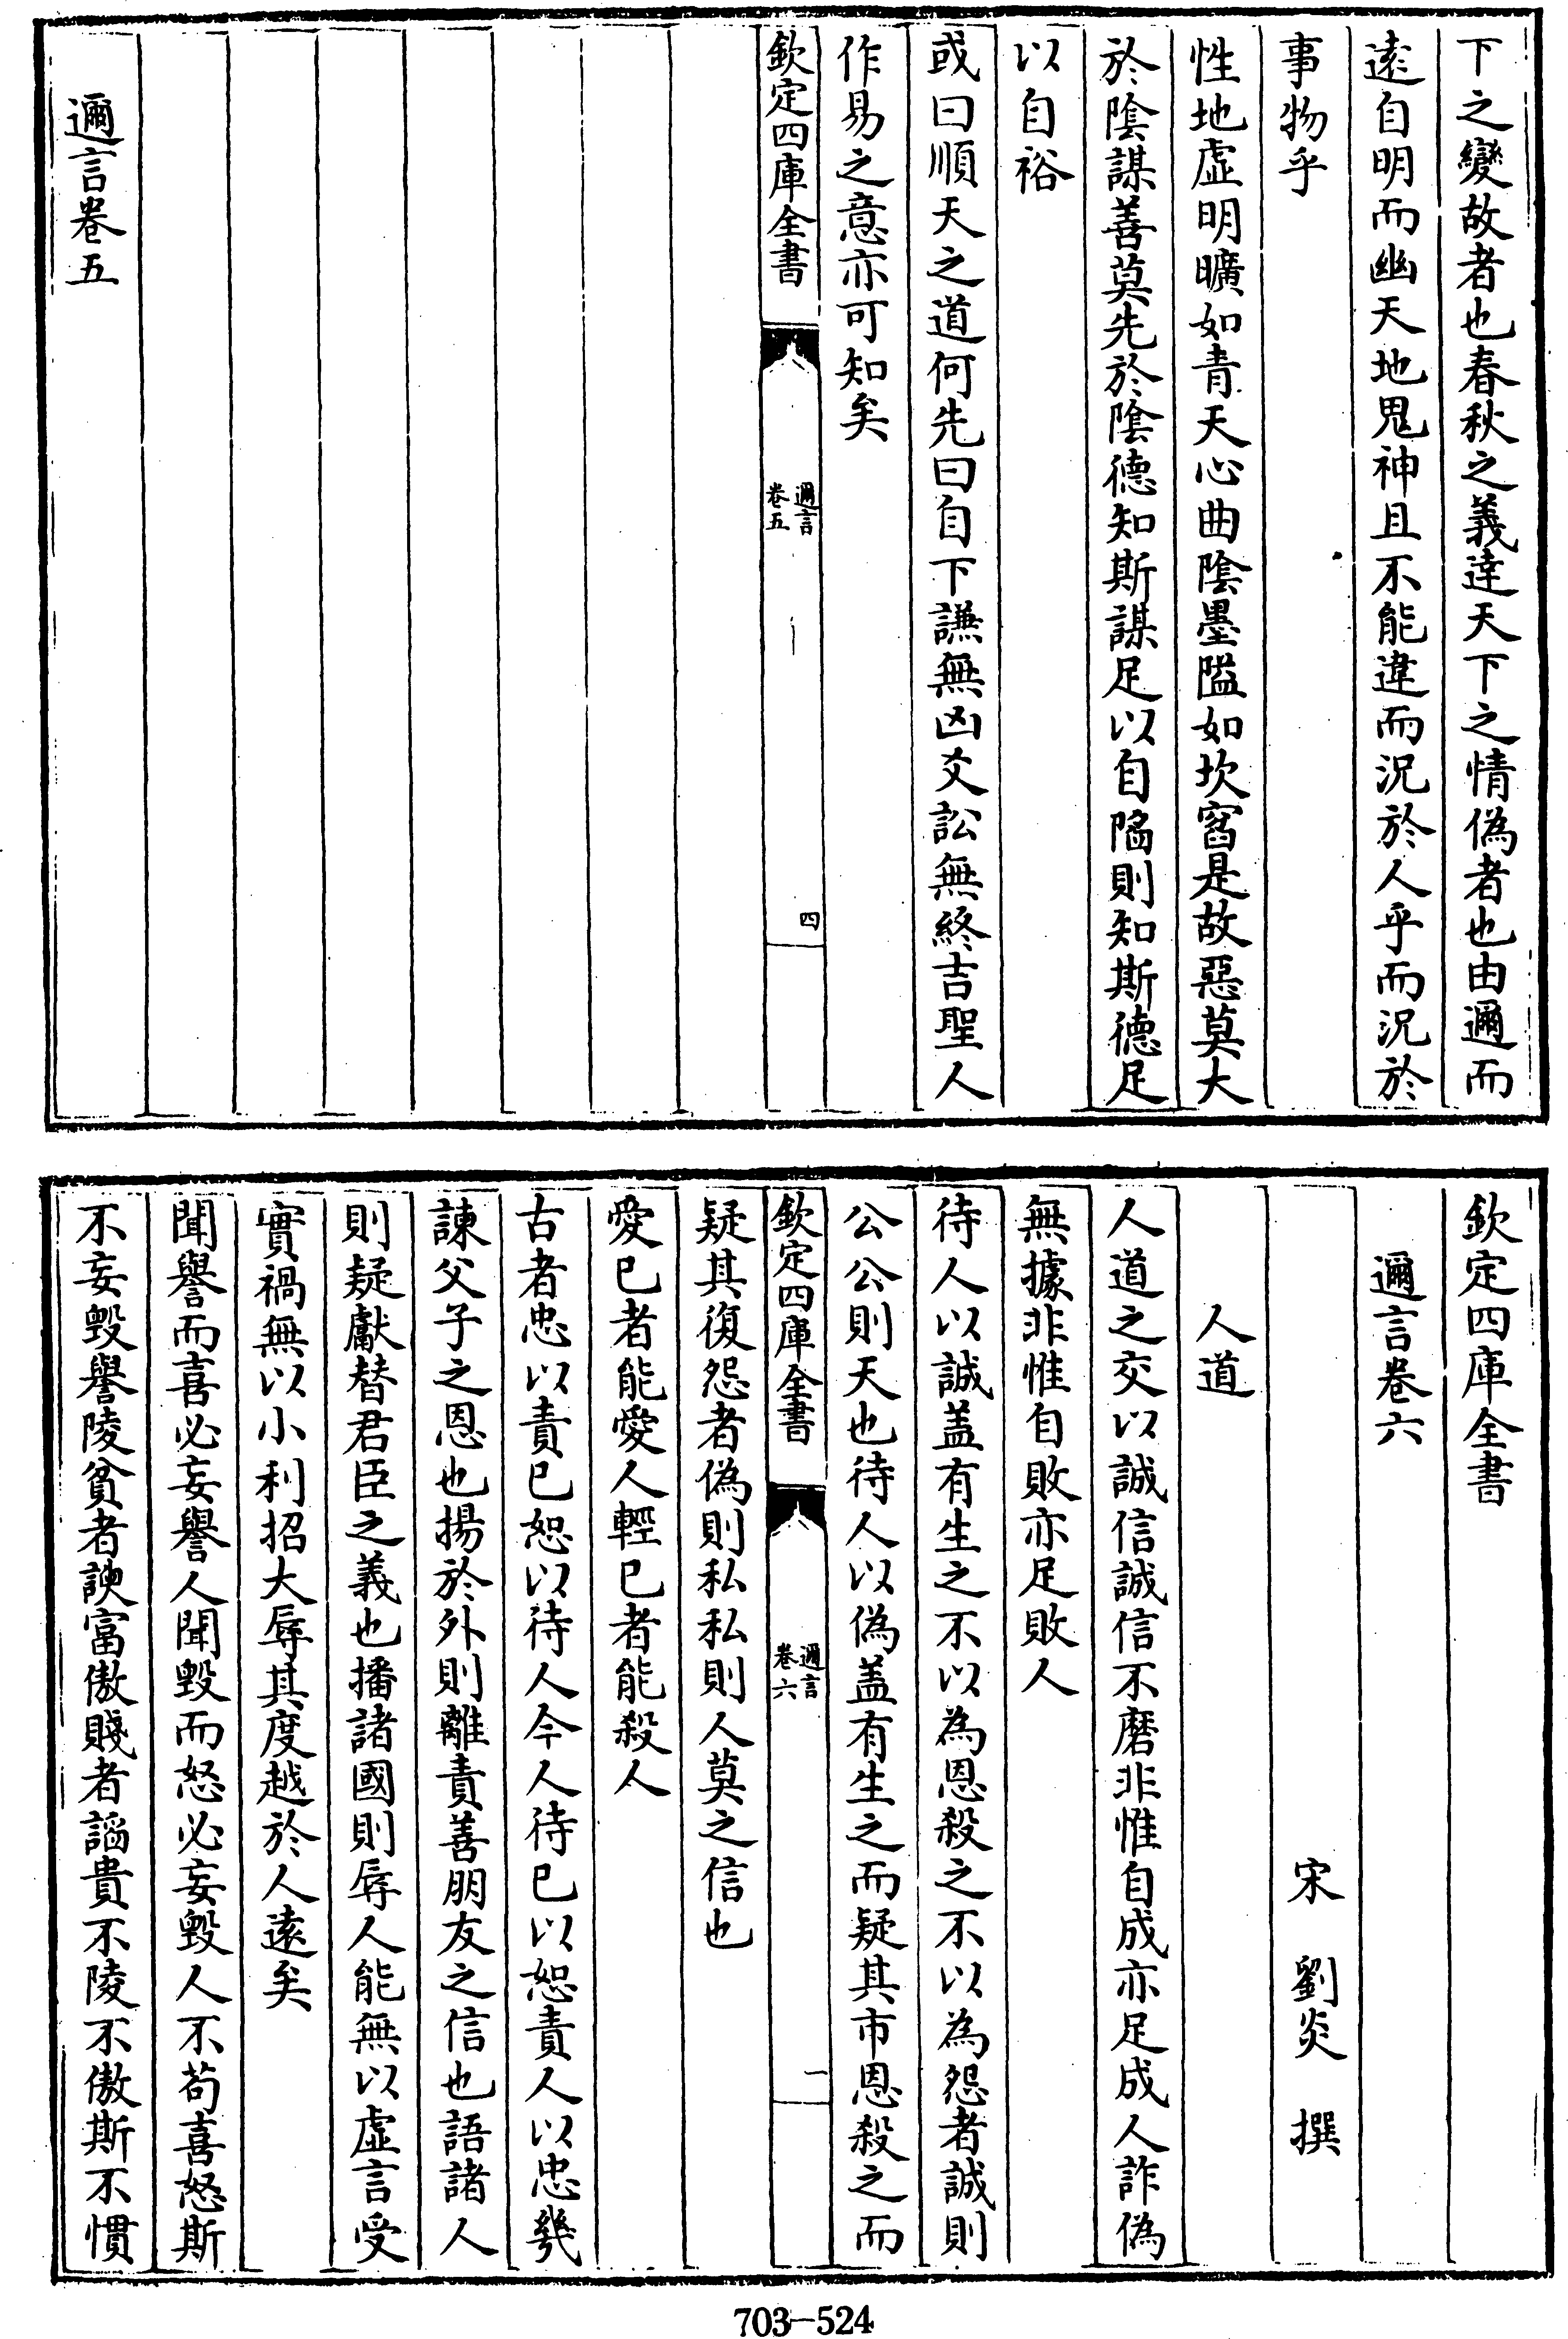 下之變故者也春秋之義達天下之情偽者也由邇而
遠自明而幽天地鬼神且不能違而況於人乎而況於
事物乎
性地虛明曠如青天心曲陰墨隘如坎窞是故惡莫大
於陰謀善莫先於陰德知斯謀足以自陷則知斯德足
以自裕
或曰順天之道何先曰自下謙無凶爻訟無終吉聖人
作易之意亦可知矣
欽定四庫全書
邇言
卷五
四
邇言卷五
欽定四庫全書
邇言卷六
宋 劉炎 撰
人道
人道之交以誠信誠信不磨非惟自成亦足成人詐偽
無據非惟自敗亦足敗人
待人以誠盖有生之不以為恩殺之不以為怨者誠則
公公則天也待人以偽盖有生之而疑其市恩殺之而
欽定四庫全書
邇言
卷六
一
疑其復怨者偽則私私則人莫之信也
愛已者能愛人輕已者能殺人
古者忠以責已恕以待人今人待已以恕責人以忠幾
諫父子之恩也揚於外則離責善朋友之信也語諸人
則疑獻替君臣之義也播諸國則辱人能無以虛言受
實禍無以小利招大辱其度越於人遠矣
聞譽而喜必妄譽人聞毀而怒必妄毀人不苟喜怒斯
不妄毀譽陵貧者諛富傲賤者諂貴不陵不傲斯不慣
703-524